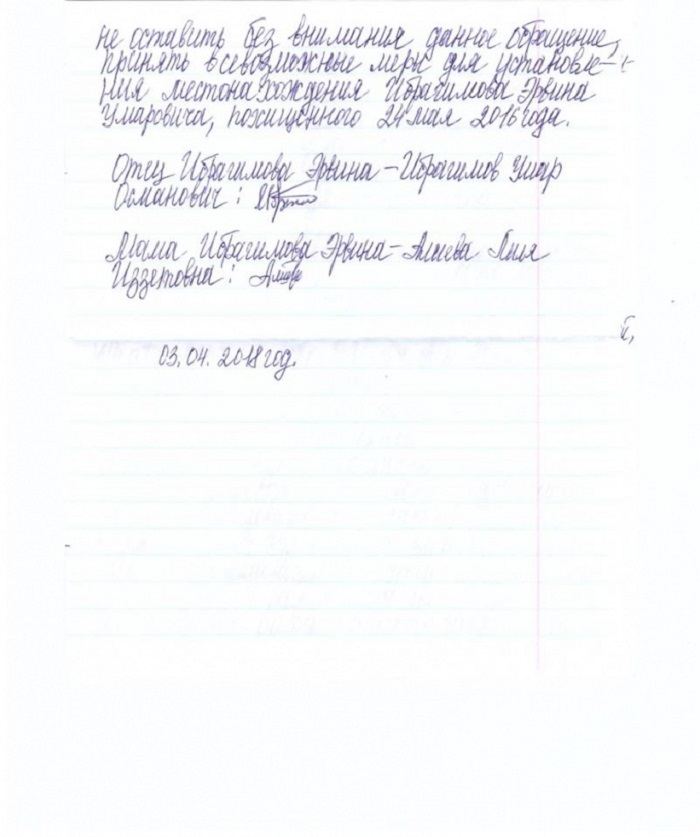 не оставить без внимания данное обращение,
принять всевозможные меры для установле-
ния местонахождения Ибрагимова Эрвина
Умаровича, похищенного 24 мая 2016 года.
Отец Ибрагимова Эрвина - Ибрагимов Умар
Османович:
Мама Ибрагимова Эрвина - Алиева Лия
Иззетовна:
03.04.2018 год.